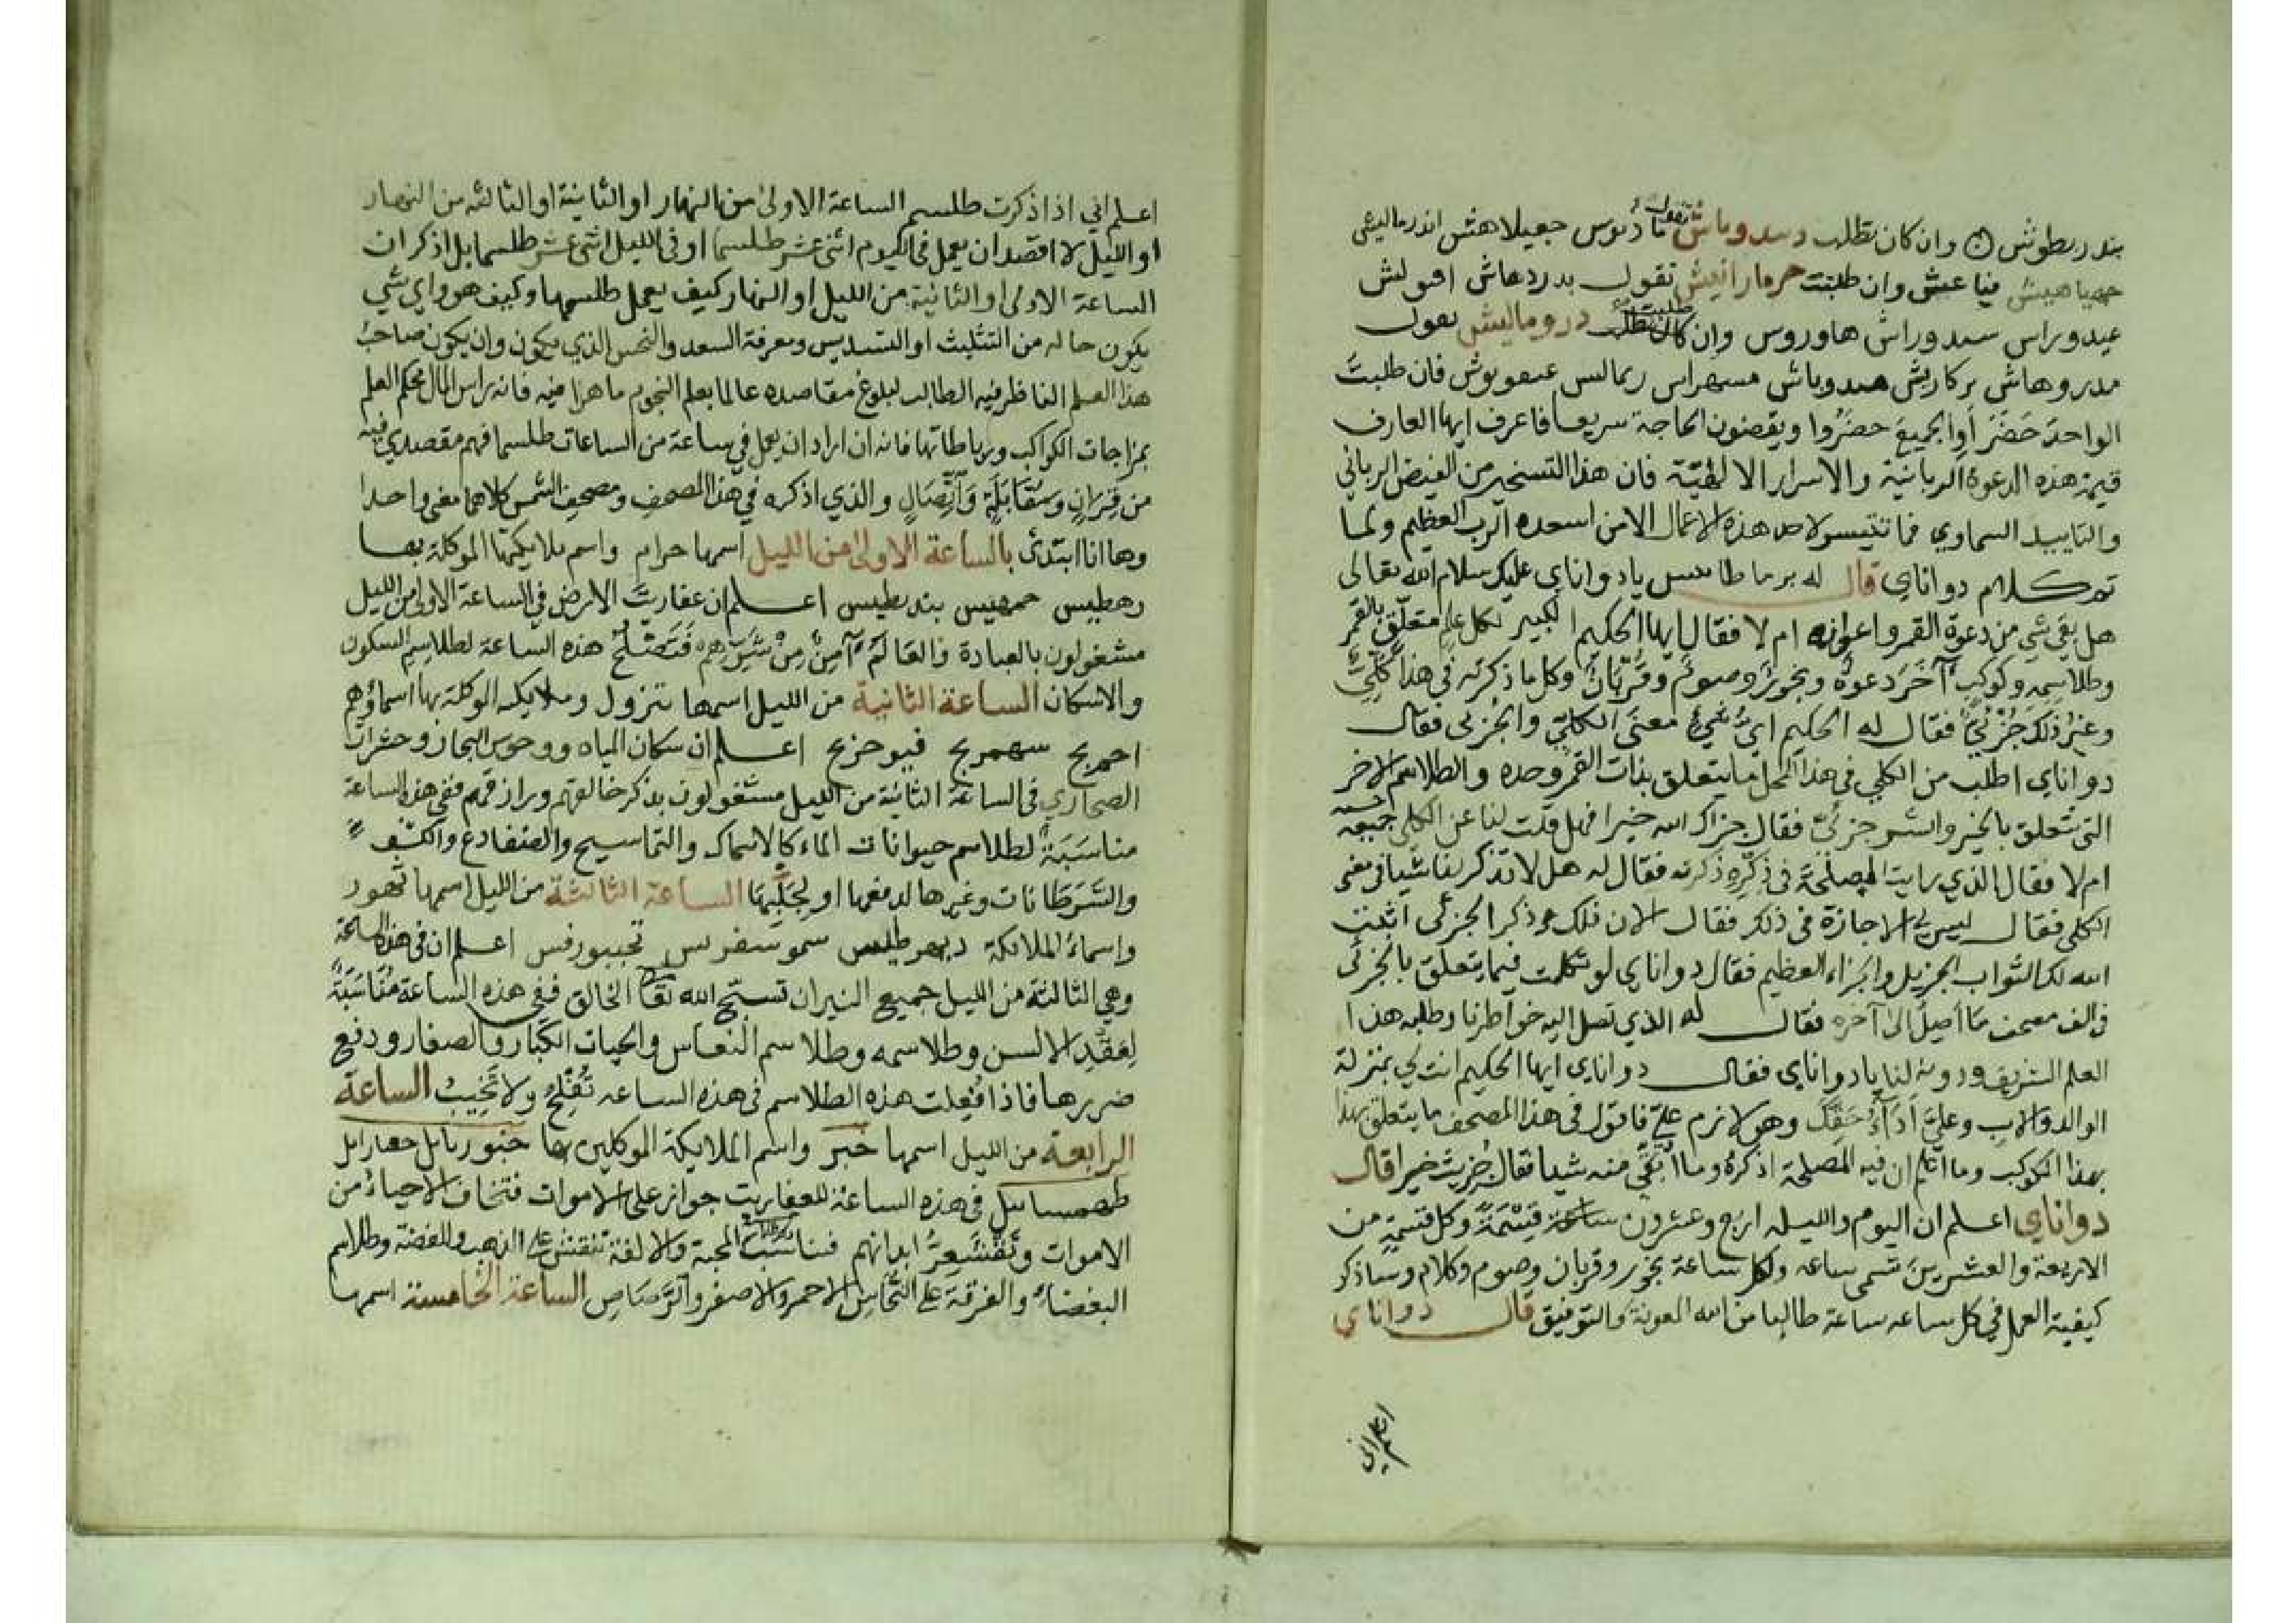 وان كان تطلب تقول جعيلاهش
وان طلبت تقول
هاوروس وان كان طلبت تقول
فان طلبت
الواحدَ حَضَرَ أوِ الجميعَ حضَرُوا ويقضون الحاجة سريعا فاعرف ايها العارف
قيمة هذه الدعوة الربانية والاسرار الالهيّة فان هذا التسخير من الفيض الرباني
والتاييد السماوي فما تتيسر لاحد هذه الاعمال الا من اسعده الرب العظيم ولما
تم كلام دواناي قال له برماطاسس يا دواناي عليك سلام الله تعالى
هل بقي شي من دعوة القمر واعوانه ام لا فقال ايها الحكيم الكبير لكل علم متعلّق بالقمر
وطلاسمه وكوكبٍ آخَرَ دعوةٌ وبخورٌ وصومٌ وقُرْبَانٌ وكل ما ذكرته في هذا كُلِّيٌّ
وغيرُ ذلك جُزْئيٌّ فقال له الحكيم ايُّ شيءٍ معنَى الكليّ والجُزئى فقال
دواناي اطلب من الكلي في هذا المحل ما يتعلق بذات القمر وحده والطلاسم الاخر
التي تتعلق بالخير والشر جزئيٌّ فقال جزاك الله خيرا فهل قلت لنا عن الكلي جميعه
ام لا فقال الذي رايت المصلحَة في ذِكْرِه ذكرته فقال له هل لا تذكر لنا شيا في معنى
الكلي فقال ليس لي الاجازة في ذلك فقال الان فلك ذكر الجزئى اثبت
الله لك الثواب الجزيل والجزاء العظيم فقال دواناي لو تكلمت فيما يتعلق بالجزئى
في الف مصحف مَا أصِلُ الى آخره فقال له الذي تصل اليه خواطرنا وطلبه هذا
العلم الشريف دونه لنا يا دواناي فقال دواناي ايها الحكيم انت لي بمنزلة
الوالد والابِ وعليَّ أدَآءُ حَقِّكَ وهو لازم عليَّ فاقول في هذا المصحف ما يتعلق بهذا
بهذا الكوكب وما اعلم ان فيه المصلحة اذكرهُ وما أُبْقي منه شيا فقال جُزيتَ خيرا قال
دواناي اعلم ان اليوم والليله اربع وعشرون ساعة قِسْمَةً وكل قسمةٍ من
الاربعة والعشرينَ تسمى ساعه ولكل ساعة بخور وقربان وصوم وكلام وساذكر
كيفية العمل في كل ساعه ساعة طالبا من الله المعونة والتوفيق قال دواناي
اعلم اني
اعلم اني اذا ذكرت طلسم الساعة الاولى من النهار او الثانية او الثالثه من النهار
او الليل لا اقصد ان يعمل في اليوم اثنى عشر طلسما او في الليل اثنى عشر طلسما بل اذكر ان
الساعة الاولى او الثانية من الليل او النهار كيف يعمل طلسمها وكيف هو واي شي
يكون حاله من التثليث او التسديس ومعرفة السعد والنحس الذي يكون وان يكون صاحبُ
هذا العلم الناظر فيه الطالب لبلوغ مقاصده عالما بعلم النجوم ماهرا فيه فانه راس المال محكم العلم
بمزاجات الكواكب ورباطاتها فانه ان اراد ان يعمل في ساعة من الساعات طلسما فهم مقصدي فيه
من قِرَانٍ ومقَابَلَةٍ وَاتّصَالٍ والذي اذكره في هذا المصحفِ ومصحف الشمس كلاهما معنى واحدا
وها انا ابتدئ بالساعة الاولى من الليل اسمها حرام واسم ملايكتها الموكلة بها
اعلم ان عفاريتَ الارض في الساعة الاولى من الليل
مشغولون بالعبادة والعَالَمُ آمِنٌ مِنْ شَرِّهِم فَتَصْلُحُ هذه الساعة لطلاسم السكون
والاسكان الساعة الثانية من الليل اسمها تنزول وملايكه الموكلة بها اسماؤهم
اجمريج سهمريج فيوحزيج اعلم ان سكان المياه ووحوس البحار وحشرات
الصحاري في الساعة الثانية من الليل مشغولون بذكر خالقهم ورازقهم ففي هذه الساعة
مناسَبَةٌ لطلاسم حيوانات الماء كالاسماك والتماسيح والضفادع
والسَّرَطانات وغيرها لدفعها او لجَلْبِهَا الساعة الثالثة من الليل اسمها تهور
واسماءُ الملائكة اعلم ان في هذه الساعة
وهي الثالثة من الليل جميع النيران تسبّح الله تعالى الخالق ففي هذه الساعة مُنَاسَبَةٌ
لِعَقْدِ الالسن وطلاسمه وطلاسم النعاس والحيات الكبار والصغار ودفع
ضررها فاذا فُعِلت هذه الطلاسم في هذه الساعه تُفْلِحُ ولا تَخِيبُ الساعة
الرابعة من الليل اسمها خبر واسم الملايكة الموكلين بها
في هذه الساعة للعفاريت جواز على الاموات فتخاف الاحياءُ من
الاموات وتَقْشَعِرُّ ابدانهم فتناسب المحبة والالفة تنقش على الذهب والفضة وطلاسم
البغضاءِ والفرقةَ على النُّحَاسِ الاحمر والاصفر والرَّصَاصِ الساعة الخامسة اسمها